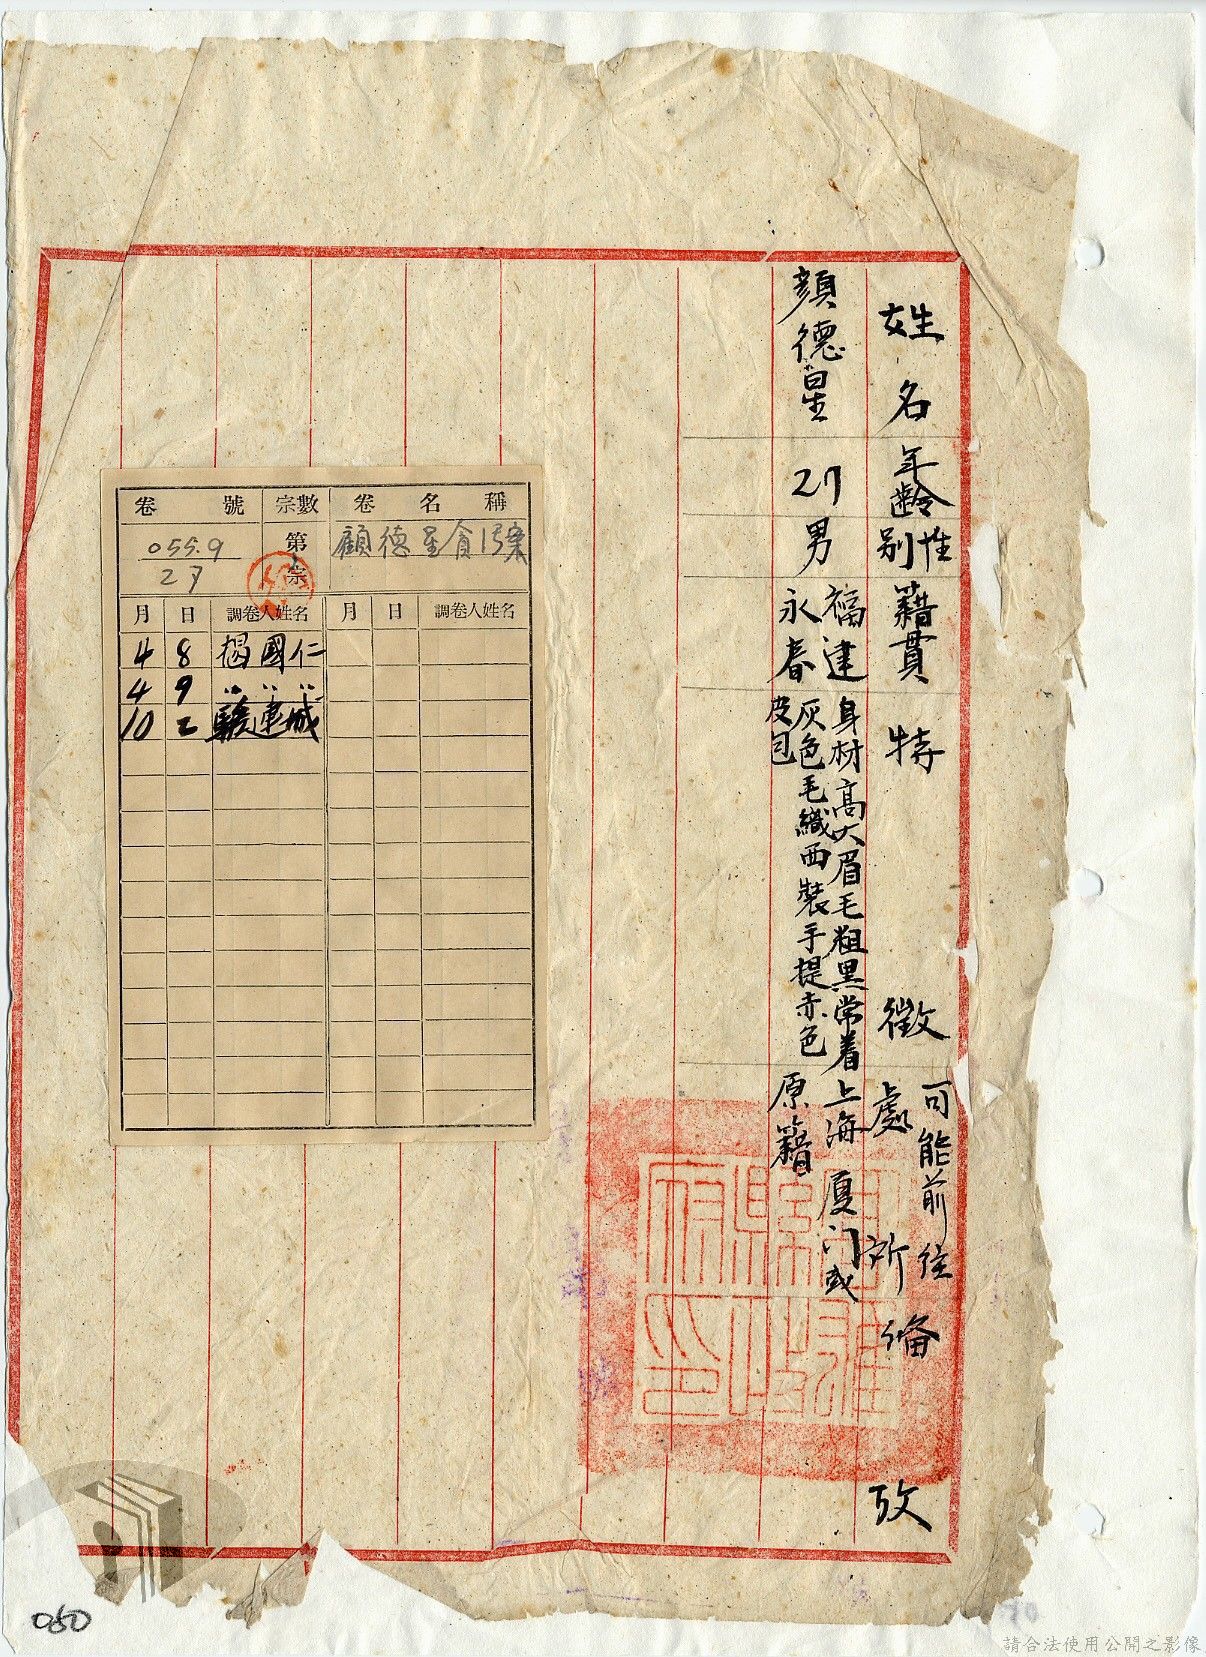 姓名
年齡
性別
籍貫
特徵
可能前往
處所
備攷
顏德星
27
男
福建
永春
身材高大眉毛粗黑常着
灰色毛織西裝手提赤色
皮包
上海厦门或
原籍
卷號 宗數 卷名稱
055.9
27
第宗
顧德星貪污案
月 日 調卷人姓名 月 日 調卷人姓名
4 8 揭國仁
4 9 〃 〃 〃
10 2
050
請合法使用公開之影像